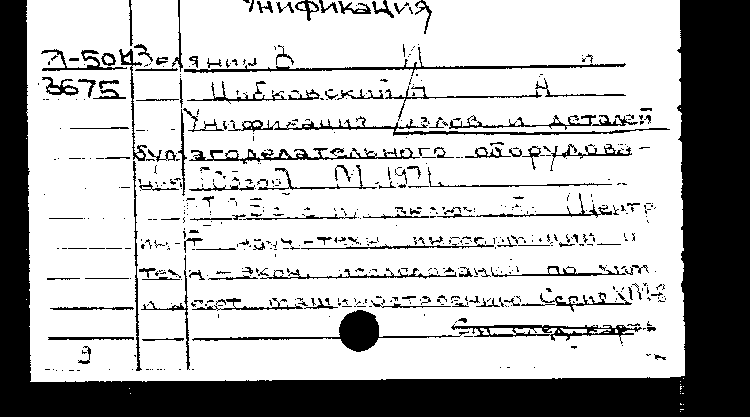 Унификация
Л-50К Зелянин В И и
3675 Цибковский А А
Унификация узлов и деталей
бумагоделательного оборудова-
ния [Обзор] М., 1971.
с ил. включ. обл. (Центр
ин-т науч.-техн. информации и
техн.-экон. исследований по хим.
и нефт. машиностроению Серия ХМ-8
См след. карт.
9